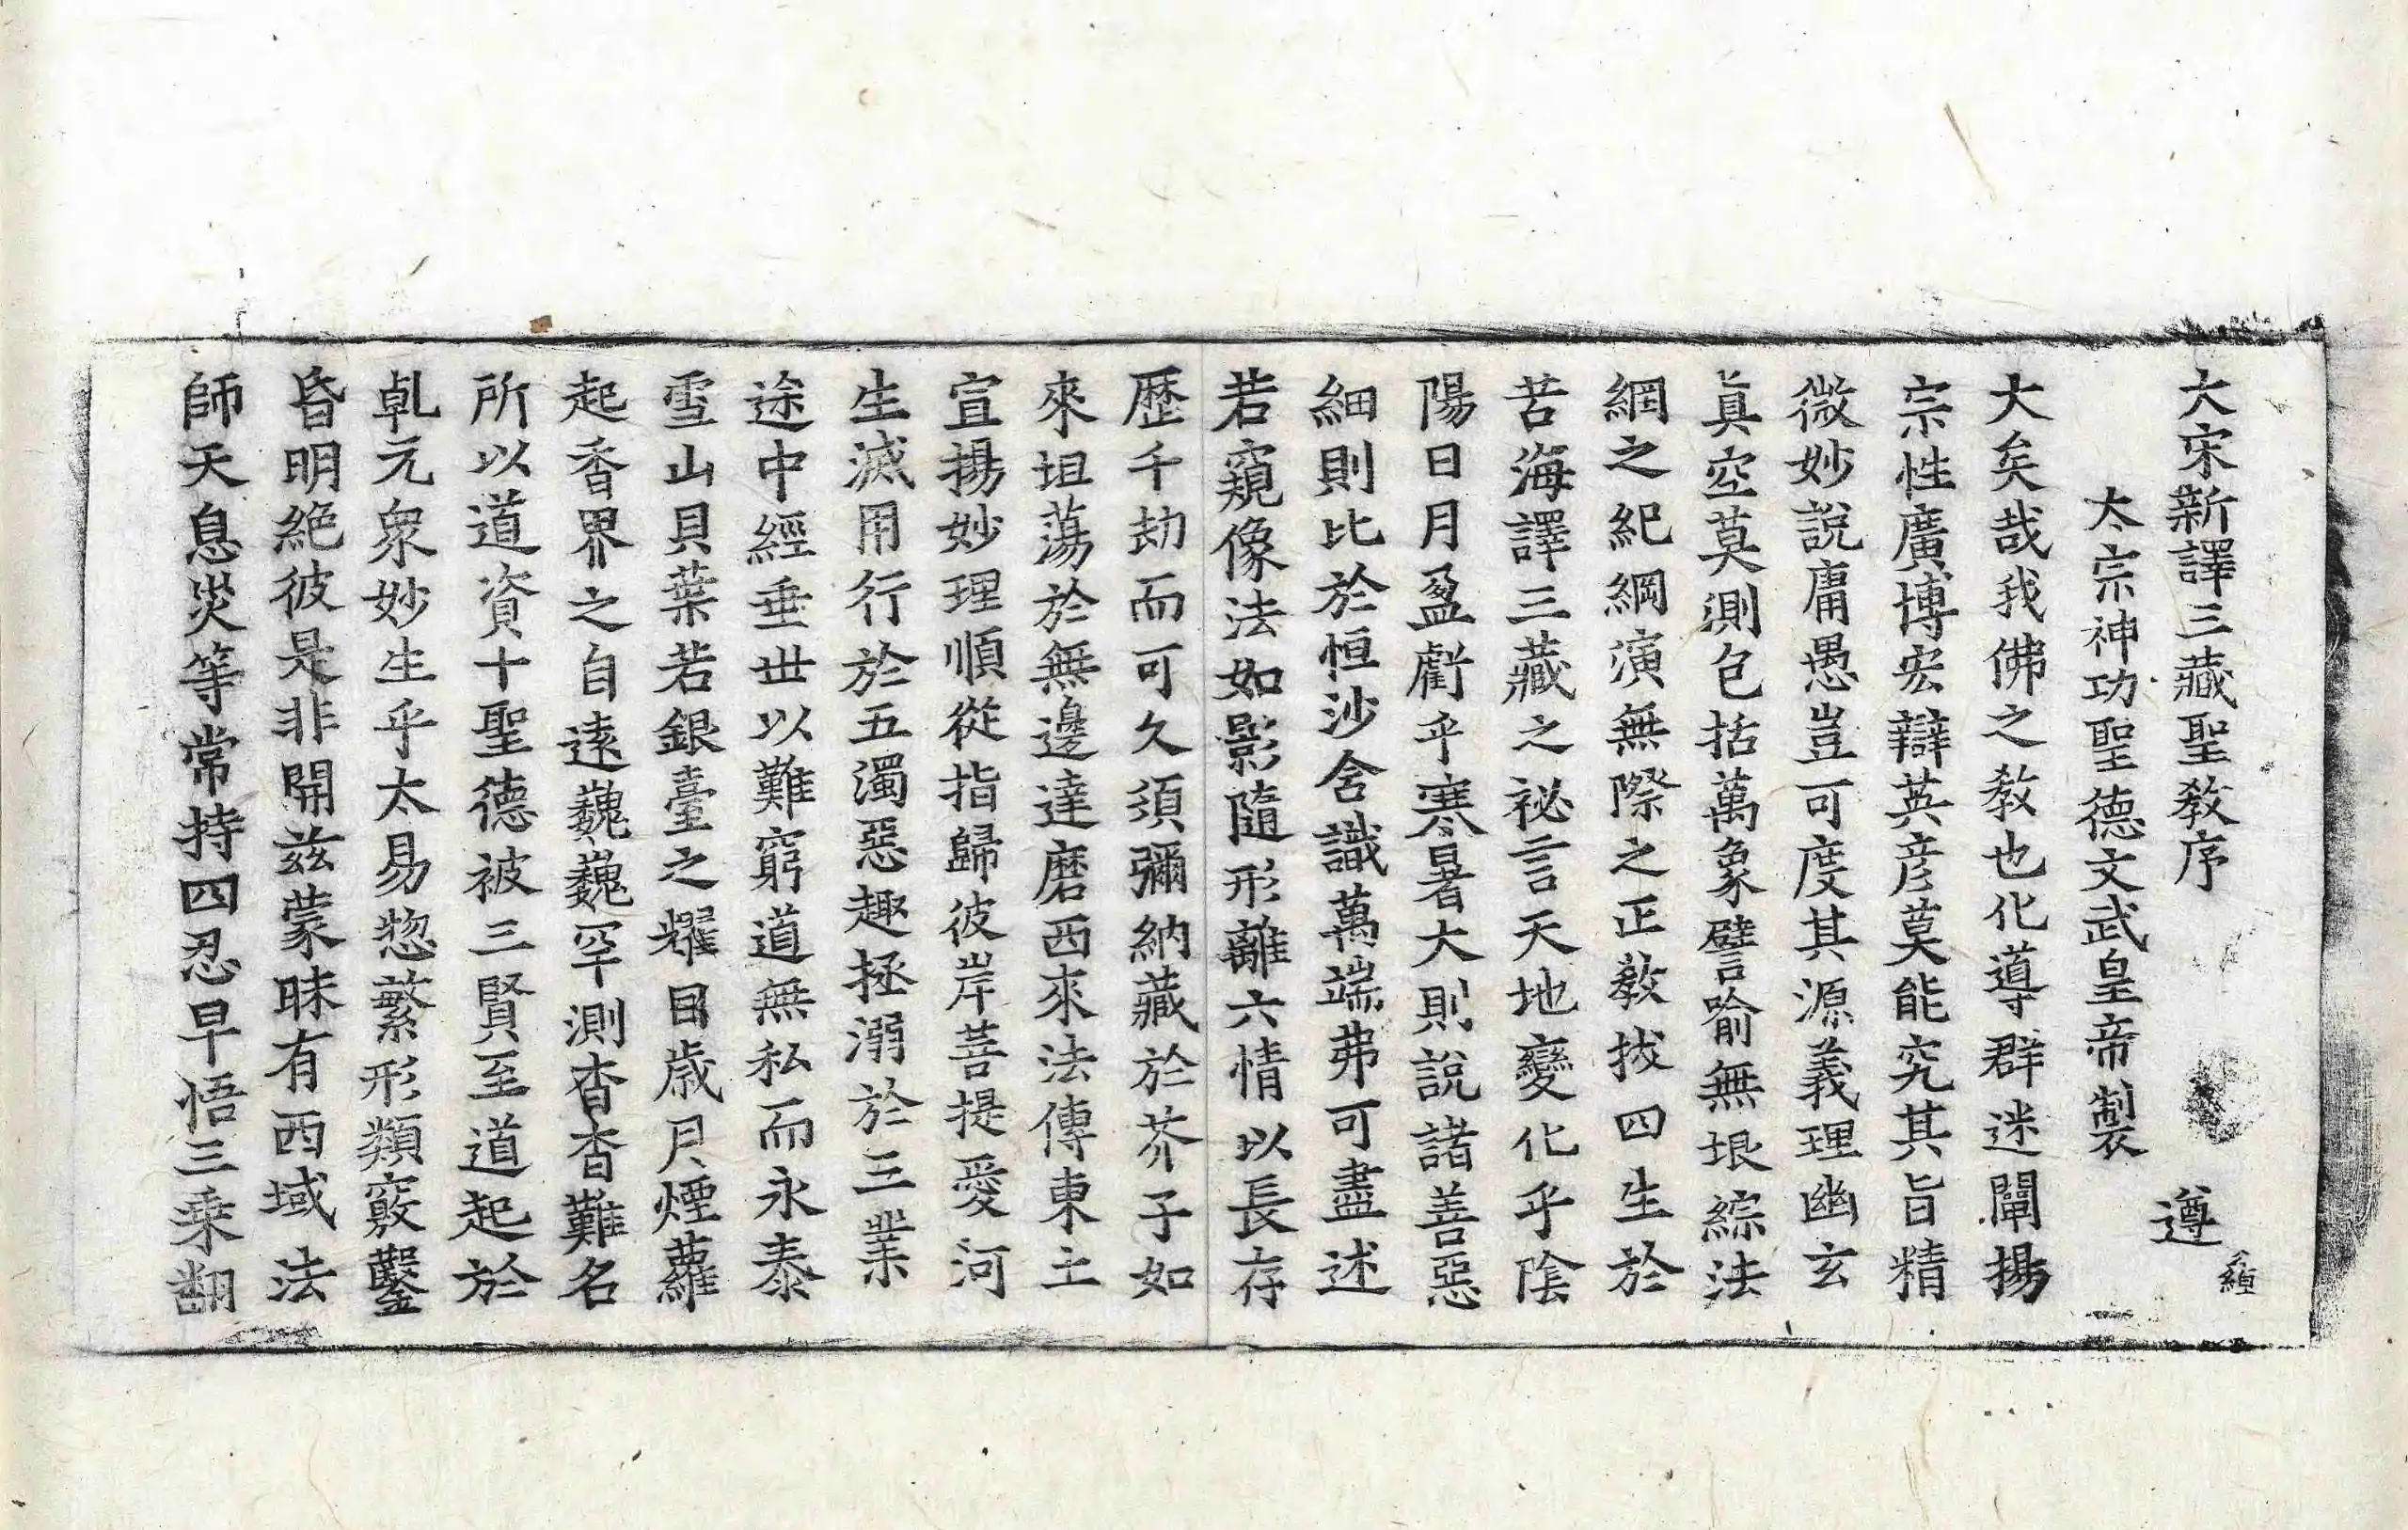 大宋新譯三藏聖教序 遵
太宗神功聖德文武皇帝製
大矣哉我佛之教也化導群迷闡揚
宗性廣博宏辯英彥莫能究其旨精
微妙說庸愚豈可度其源義理幽玄
真空莫測包括萬象譬喻無垠綜法
網之紀綱演無際之正教拔四生於
苦海譯三藏之祕言天地變化乎陰
陽日月盈虧乎寒暑大則說諸善惡
細則比於恒沙含識萬端弗可盡述
若窺像法如影隨形離六情以長存
歷千劫而可久須彌納藏於芥子如
來坦蕩於無邊達磨西來法傳東土
宣揚妙理順從指歸彼岸菩提愛河
生滅用行於五濁惡趣拯溺於三業
途中經垂世以難窮道無私而永泰
雪山貝葉若銀臺之耀目歲月煙蘿
起香界之自遠巍巍罕測杳杳難名
所以道資十聖德被三賢至道起於
乹元衆妙生乎太易惣繁形類竅鑿
昏明絕彼是非開茲蒙昧有西域法
師天息災等常持四忍早悟三乘翻